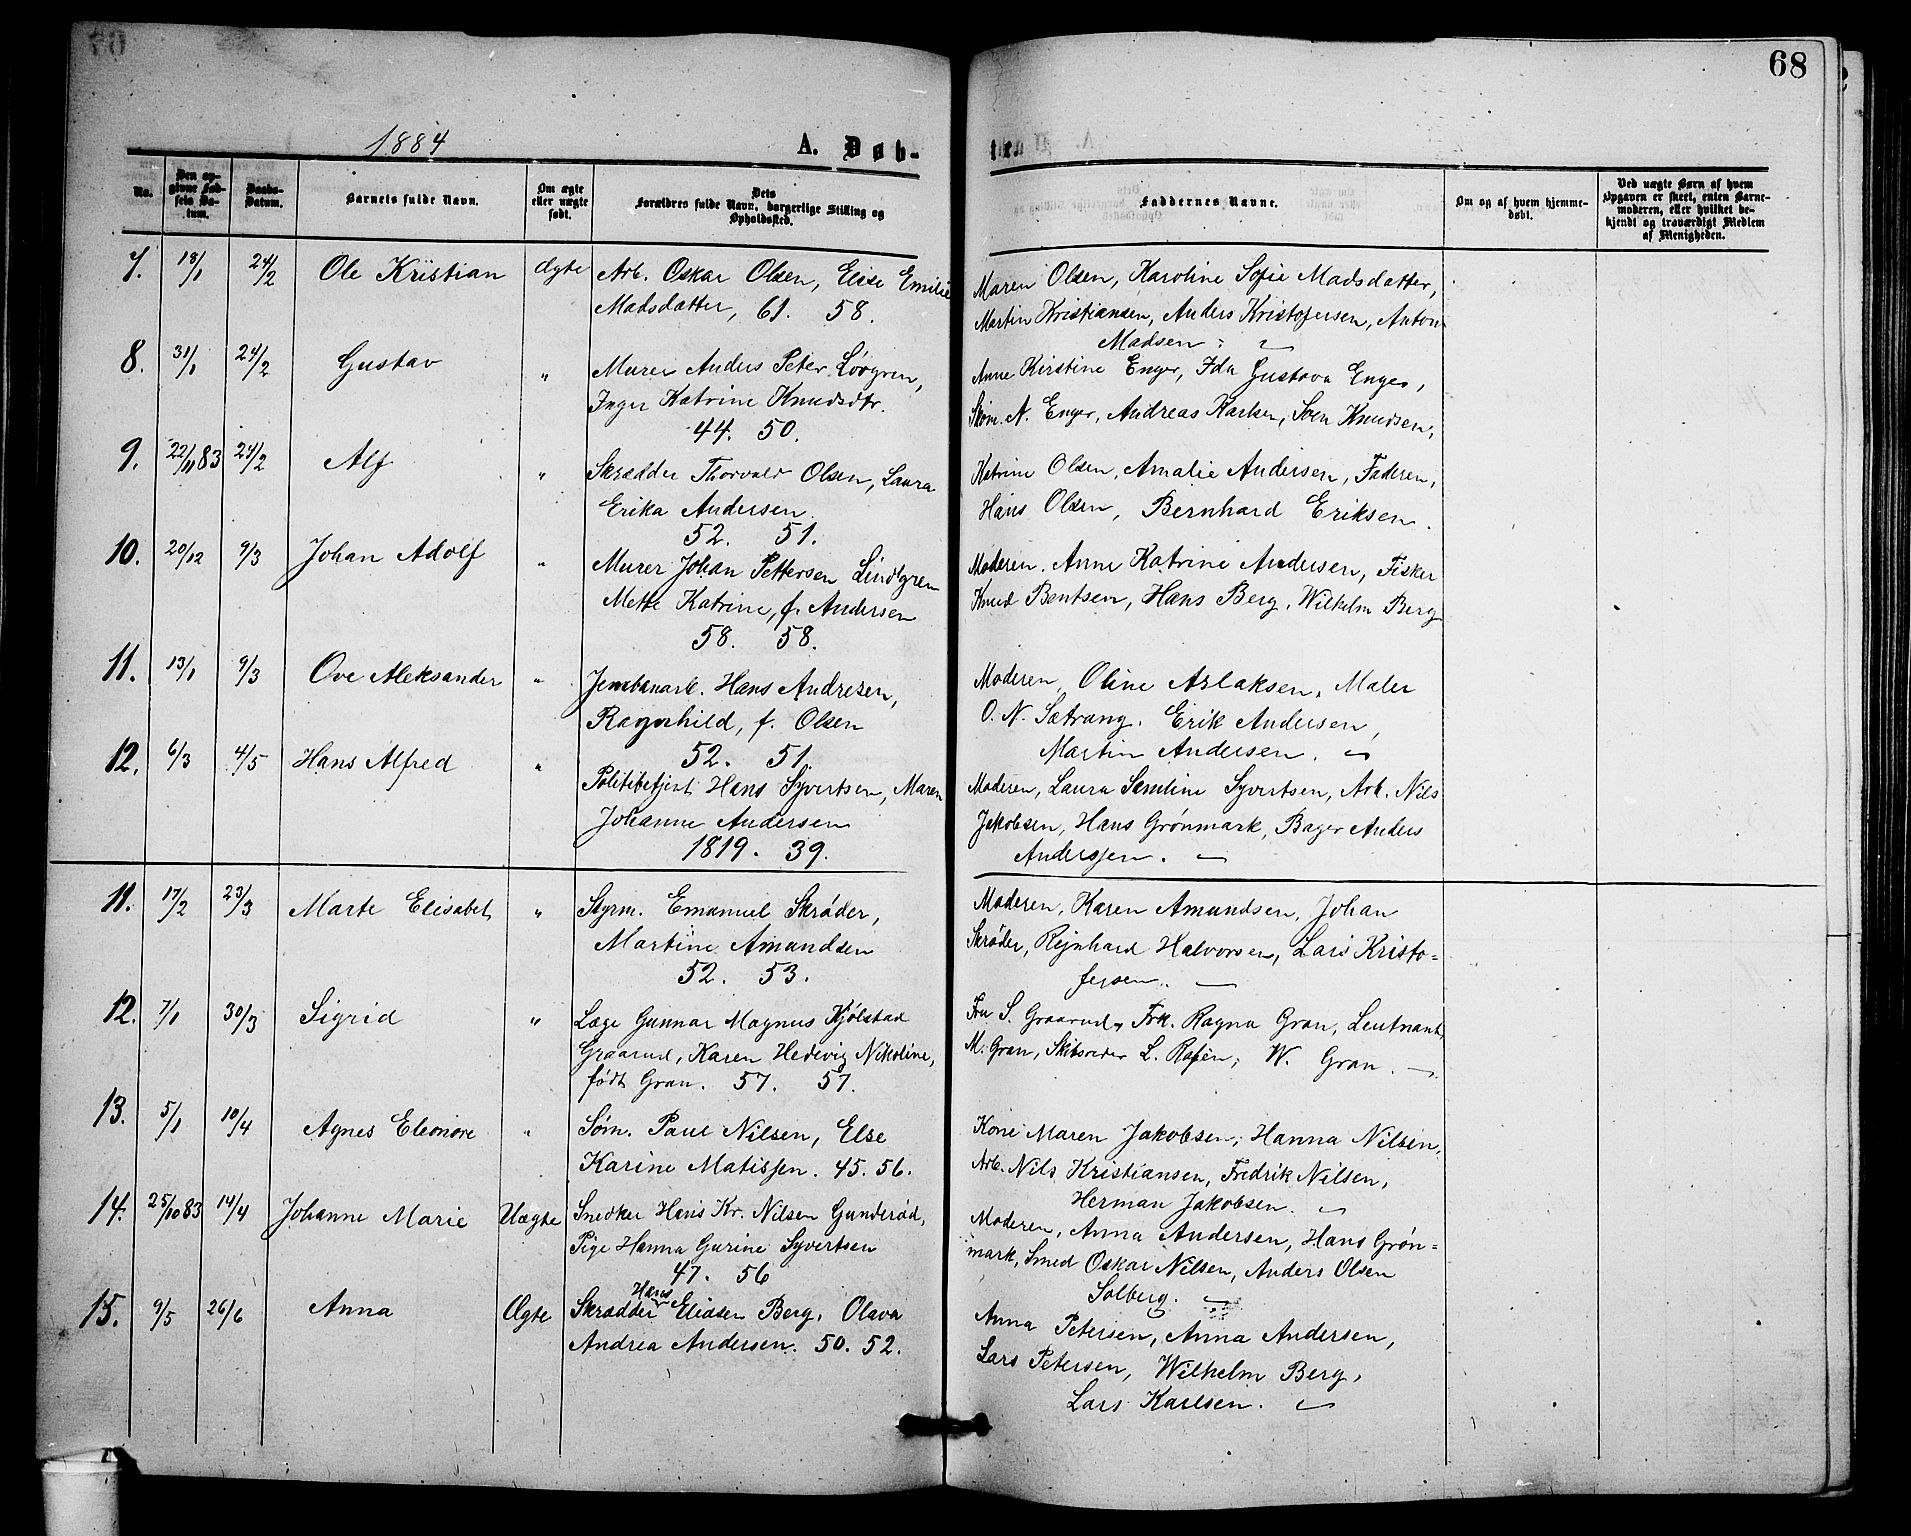 68
1884
A. Døb-
te.
No.
Den opgivne Fødsels Datum.
Daabs-Datum.
Barnets fulde Navn.
Om ægte eller uægte født.
Dets Forældres fulde Navn, borgerlige Stilling og Opholdssted.
Faddernes Navne.
Om og af hvem hjemmedøbt.
Ved uægte Børn af hvem Opgaven er skeet, enten Barnemoderen, eller hvilket bekjendt og troværdigt Medlem af Menigheden.
7. 18/1 24/2 Ole Kristian Ægte Arb. Oskar Olsen, Elise Emilie
Madsdatter, 61. 58.
Maren Olsen, Karoline Sofie Madsdatter,
Martin Kristiansen, Anders Kristofersen, Anton
Madsen
8. 31/1 24/2 Gustav " Murer Anders Peter Lövgren,
Inger Katrine Knudsdtr.
44. 50.
Anne Kirstine Enger, Ida Gustava Enger,
Skom. N. Enger, Andreas Karlsen, Sven Knudsen,
9. 22/11 83 24/2 Alf " Skrædder Thorvald Olsen, Laura
Erika Andersen.
52. 51.
Katrine Olsen, Amalie Andersen, Faderen,
Hans Olsen, Bernhard Eriksen.
10. 20/12 9/3 Johan Adolf " Murer Johan Pettersen Lindgren
Mette Katrine, f. Andersen
58. 58.
Moderen. Anne Katrine Andersen, Fisker
Knud Bentsen, Hans Berg, Wilhelm Berg
11. 13/1 9/3 Ove Aleksander " Jernbanarb. Hans Andresen,
Ragnhild, f. Olsen
52. 51.
Moderen, Oline Aslaksen, Maler
O. N. Satrang. Erik Andersen,
Martin Andersen.
12. 6/3 4/5 Hans Alfred " Politibetjent Hans Syvertsen, Maren
Johanne Andersen
1819. 39.
Moderen, Laura Semline Syvertsen, Arb. Nils
Jakobsen, Hans Grønmark, Bager Anders
Anderssen.
11. 17/2 23/3 Marte Elisabet " Styrm. Emanuel Skrøder,
Martine Amundsen
52. 53.
Moderen, Karen Amundsen, Johan
Skrøder, Rejnhard Halvorsen, Lars Kristo=
fersen.
12. 7/1 30/3 Sigrid " Læge Gunnar Magnus Kjölstad
Graarud, Karen Hedevig Nikoline,
født Gran. 57. 57.
Fru S. Graarud, Frk. Ragna Gran, Leutnant
M. Gran, Skibsreder L. Rafen, W. Gran.
13. 5/1 10/4 Agnes Eleonore " Søm. Paul Nilsen, Else
Karine Matissen. 45. 56.
Kone Maren Jakobsen, Hanna Nilsen,
Arb. Nils Kristiansen, Fredrik Nilsen,
Herman Jakobsen.
14. 25/10 83 14/4 Johanne Marie Uægte Snedker Hans Kr. Nilsen Gunderød,
Pige Hanna Gurine Syvertsen
47. 56
Moderen, Anna Andersen, Hans Grøn=
mark, Smed Oskar Nilsen, Anders Olsen
Solberg.
15. 9/5 26/6 Anna Ægte Skrædder Hans Eliasen Berg, Olava
Andrea Andersen. 50. 52.
Anna Petersen, Anna Andersen,
Lars Petersen, Wilhelm Berg,
Lars Karlsen.